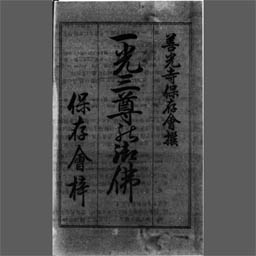 善光寺保存會撰
一光三尊御佛
保存會梓